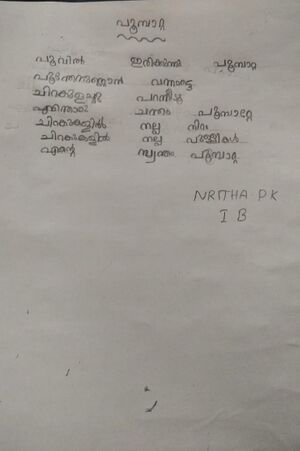 പൂമ്പാറ്റ
പൂവിൽ ഇരിക്കുന്ന പൂമ്പാറ്റ
പൂന്തേനുണ്ണാൻ വന്നാട്ടെ
ചിറകുളച്ചു പറന്നീടു
എന്തിനാലെ ചന്തം പൂമ്പാറ്റേ
ചിറകുകളിൽ നല്ല നിറം
ചിറകുകളിൽ നല്ല പുള്ളികൾ
എന്റെ സ്വന്തം പൂമ്പാറ്റ
NRITHA P K
I B